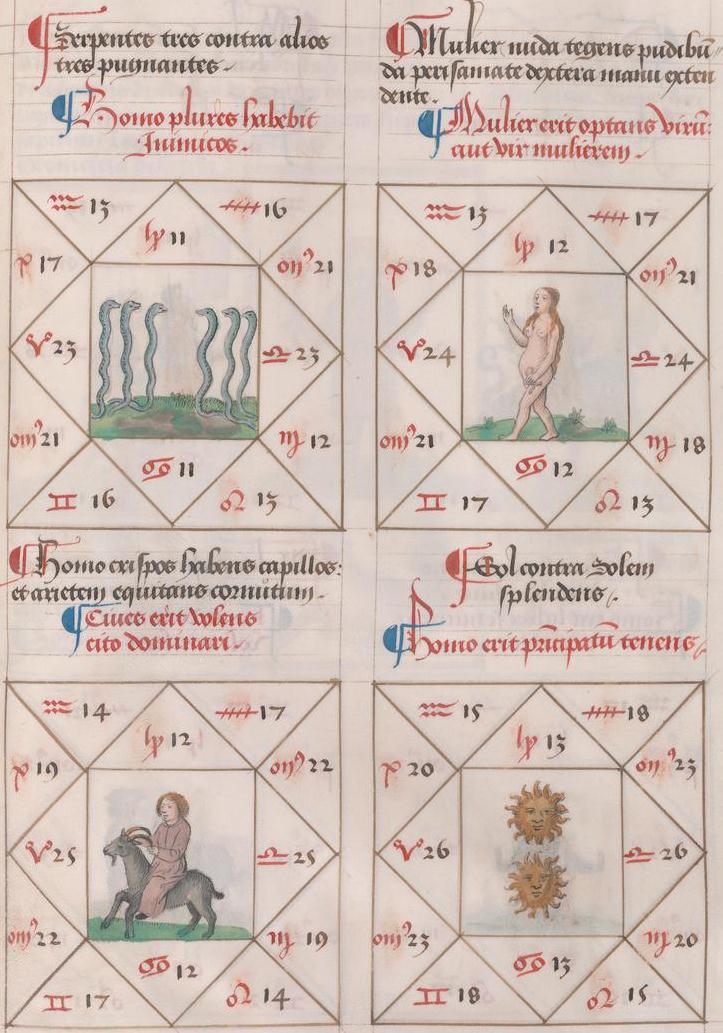 Serpentes tres contra alios
tres pugnantes.
Homo plures habebit
Inimicos.
♒ 13
♑ 11
♓ 16
17
21
♈ 23
♎ 23
21
♏ 12
♊ 16
♋ 11
♌ 13
Mulier nuda tegens pudibū
da peri samate dextera manu exten
dente.
Mulier erit optans virū:
aut vir mulierem.
♒ 13
♑ 12
♓ 17
18
21
♈ 24
♎ 24
21
♏ 18
♊ 17
♋ 12
♌ 13
Homo crispos habens capillos:
et arietem equitans cornutum.
Ciues erit volens
cito dominari.
♒ 14
♑ 12
♓ 17
19
22
♈ 25
♎ 25
22
♏ 19
♊ 17
♋ 12
♌ 14
Sol contra Solem
splendens
Homo erit prīcipatū tenens
♒ 15
♑ 13
♓ 18
20
23
♈ 26
♎ 26
23
♏ 20
♊ 18
♋ 13
♌ 15